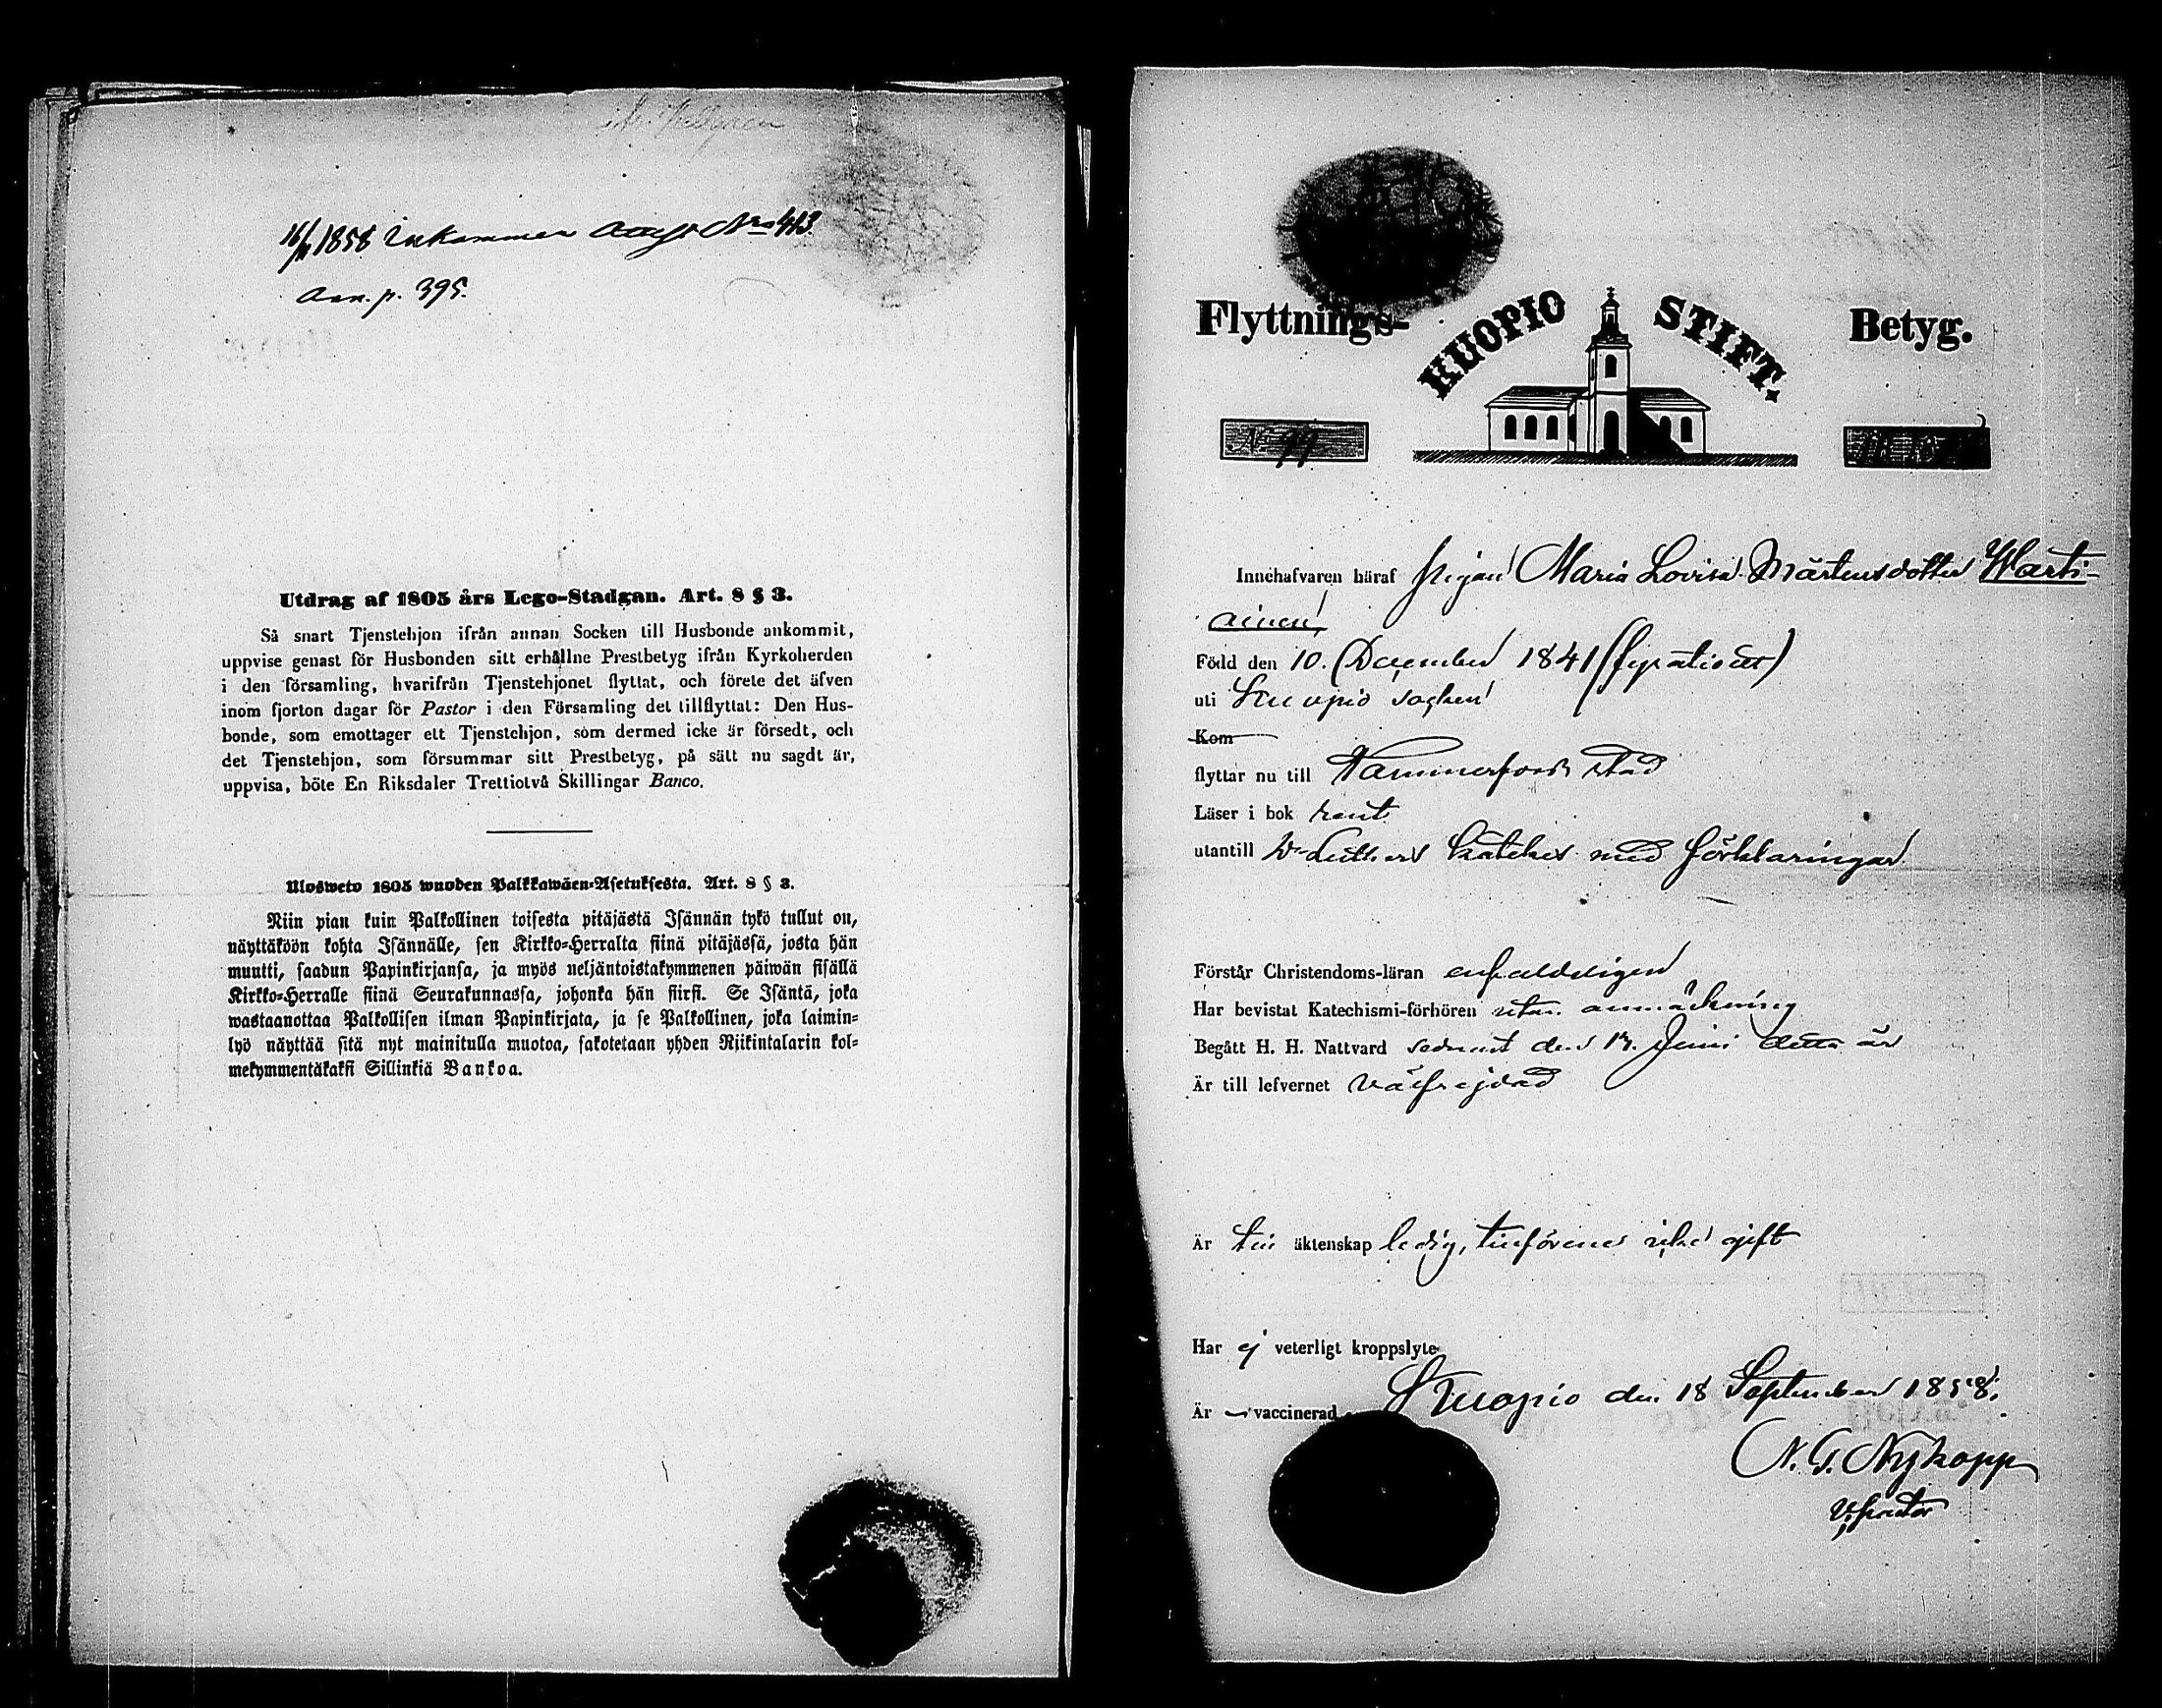 16/11 1858 Inkommen Nro 413.
Ann. p. 395.
Utdrag af 1805 års Lego-Stadgan. Art. 8 § 3.
Så snart Tjenstehjon ifrån annan Socken till Husbonde ankommit,
uppvise genast för Husbonden sitt erhållne Prestbetyg ifrån Kyrkoherden
i den församling, hvarifrån Tjenstehjonet flyttat, och förete det äfven
inom fjorton dagar för Pastor i den Församling det tillflyttat: Den Hus-
bonde, som emottager ett Tjenstehjon, som dermed icke är försedt, och
det Tjenstehjon, som försummar sitt Prestbetyg, på sätt nu sagdt är,
uppvisa, böte En Riksdaler Trettiotvå Skillingar Banco.
Ulosweto 1805 wuoden Palkkawäen-Asetuksesta. Art. 8 § 3.
Niin pian kuin Palkollinen toisesta pitäjästä Isännän tykö tullut on,
näyttäköön kohta Isännälle, sen Kirkko-Herralta siinä pitäjässä, josta hän
muutti, saadun Papinkirjansa, ja myös neljäntoistakymmenen päiwän sisällä
Kirkko-Herralle siinä Seurakunnassa, johonka hän siirsi. Se Isäntä, joka
wastaanottaa Palkollisen ilman Papinkirjata, ja se Palkollinen, joka laimin-
lyö näyttää sitä nyt mainitulla muotoa, sakotetaan yhden Riikintalarin kol-
mekymmentäkaksi Sillinkiä Bankoa.
Flyttnings- KUOPIO STIFT. Betyg.
N 99
Innehafvaren häraf pigan Maria Lovisa Mårtensdotter Warti-
ainen,
Född den 10. December 1841
uti Kuopio socken
Kom
flyttar nu till Tammerfors stad
Läser i bok rent
utantill Dr Luthers katekes med förklaringar
Förstår Christendoms-läran enfaldeligen
Har bevistat Katechismi-förhören utan anmärkning
Begått H. H. Nattvard sednast den 13. Juni detta år
Är till lefvernet välfrejdad
Är till äktenskap ledig, tillförene icke gift
Har ej veterligt kroppslyte
Är vaccinerad Kuopio den 18 September 1858.
N. G. Nykopp
V. pastor